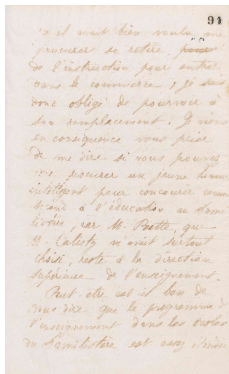 91
il avait bien voulu me
procurer se retire pour
de l'instruction pour entrer
dans le commerce, je suis
donc obligé de pourvoir à
son remplacement. Je viens
en conséquence vous prier
de me dire si vous pouvez
me procurer un jeune homme
intelligent pour concourir
à l'éducation au Fami
listère, car M.
M. avait surtout
choisi, reste à la direction
supérieure de l'enseignement.
Peut-être est-il bon de
vous dire que le programme de
l'enseignement dans les écoles
du Familistère est assez étendu